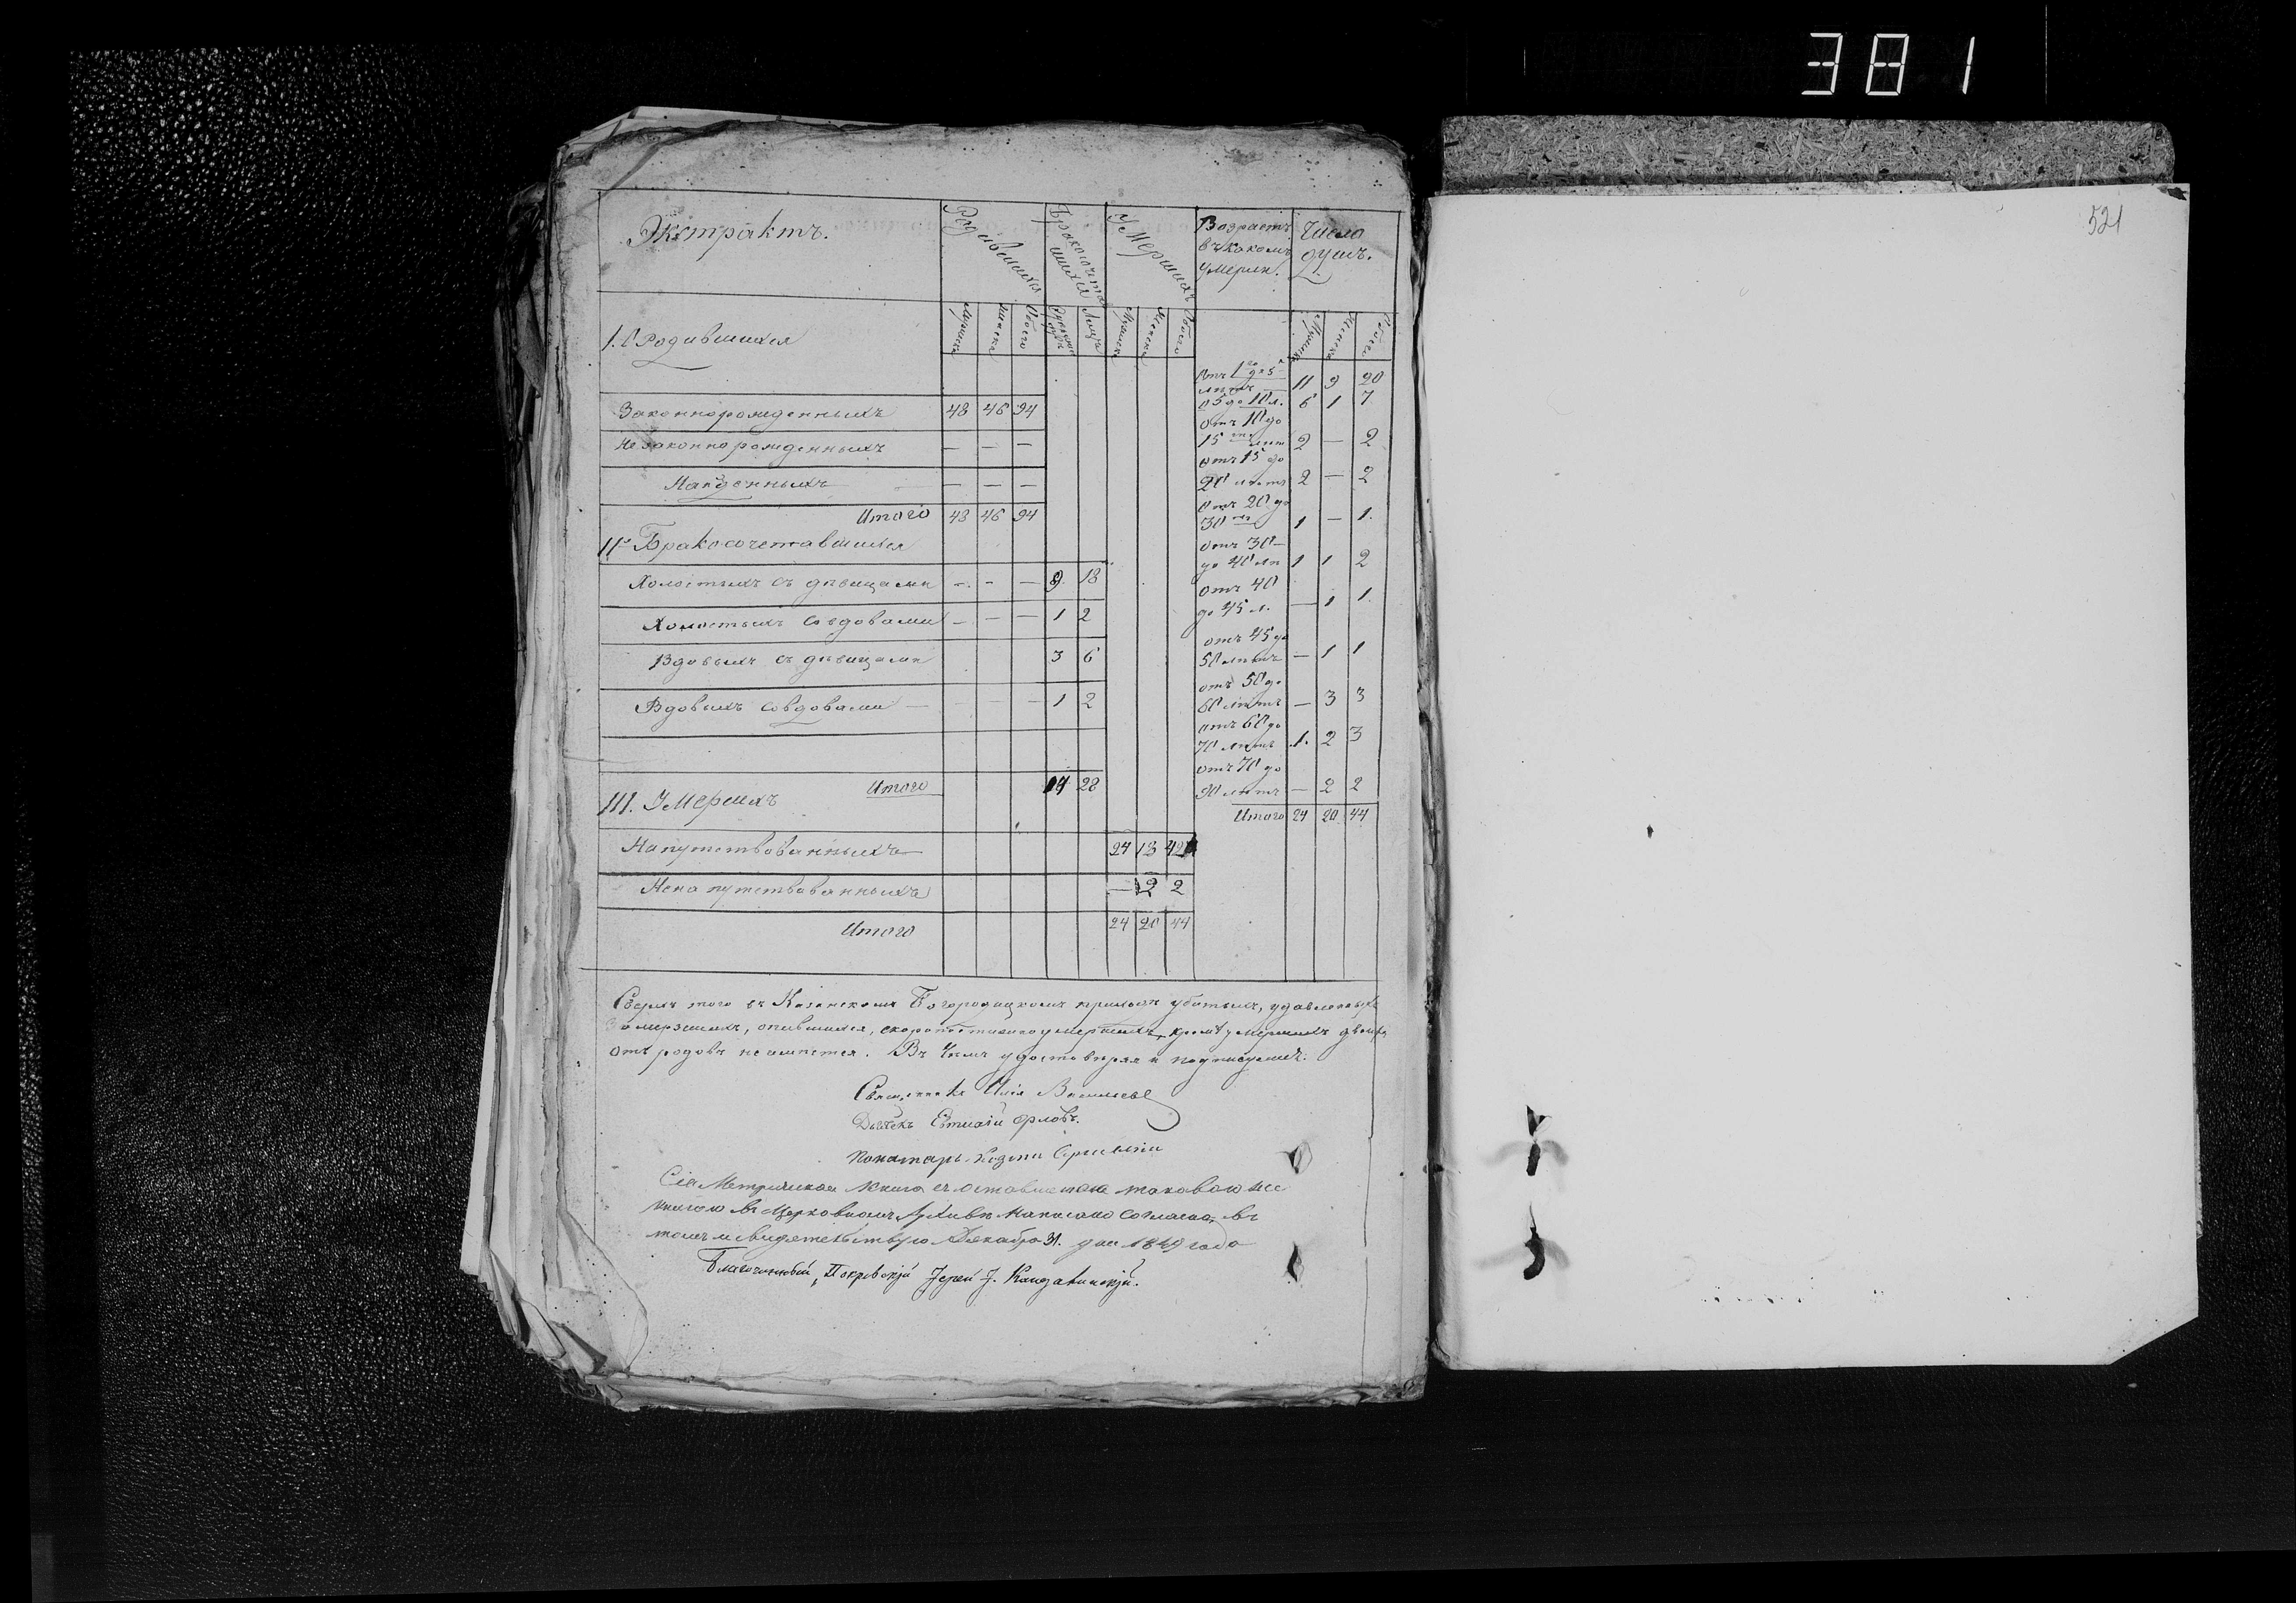 381
521
Экстрактъ.
Родившихся
Бракосочетавшихся
Умершихъ
Возрастъ въ какомъ умерли.
Число душъ.
I. Родившихся
Мужеска Женска Обоего
Лицъ
Мужеска Женска Обоего
Мужеска Женска Обоего
Законнорожденныхъ 48 46 94
Незаконнорожденныхъ — — —
Найденныхъ — — —
Итого 48 46 94
II. Бракосочетавшихся
Холостыхъ съ дѣвицами — — — 9 18
Холостыхъ совдовами — — — 1 2
Вдовыхъ съ дѣвицами 3 6
Вдовыхъ совдовами — — — 1 2
Итого 14 28
III. Умершихъ
Напутствованныхъ 24 18 42
Ненапутствованныхъ — 2 2
Итого 24 20 44
Отъ 1го до 5
лѣтъ — 11 9 20
о 5 до 10 л. 6 1 7
отъ 10 до
15 лѣт 2 — 2
отъ 15 до
20 лѣтъ 2 — 2
отъ 20 до
30 1 — 1.
отъ 30 —
до 40 лѣ 1 1 2
отъ 40
до 45 л. — 1 1.
отъ 45 до
50 лѣтъ — 1 1
отъ 50 до
60 лѣтъ — 3 3
отъ 60 до
70 лѣтъ 1. 2 3
отъ 70 до
90 лѣтъ — 2 2
Итого 24 20 44
Сверхъ того въ Казанскомъ Богородицкомъ приходѣ убитыхъ, удавленныхъ
замерзшихъ, опившихся, скоропостижно умершихъ, кромѣ умершихъ двоихъ
отъ родовъ не имѣется. Въ чемъ удостовѣряя и подписуемъ.
Священникъ Илія Васильевъ
Дьячекъ Евтихій Орловъ.
Пономарь Козма
Сія Метрическая книга съ оставшеюся таковою же
книгою въ Церковномъ Архивѣ написана согласно, въ
томъ и свидетельствую Декабря 31. дня 1849 года
Благочинный, Покровскій Іерей І.